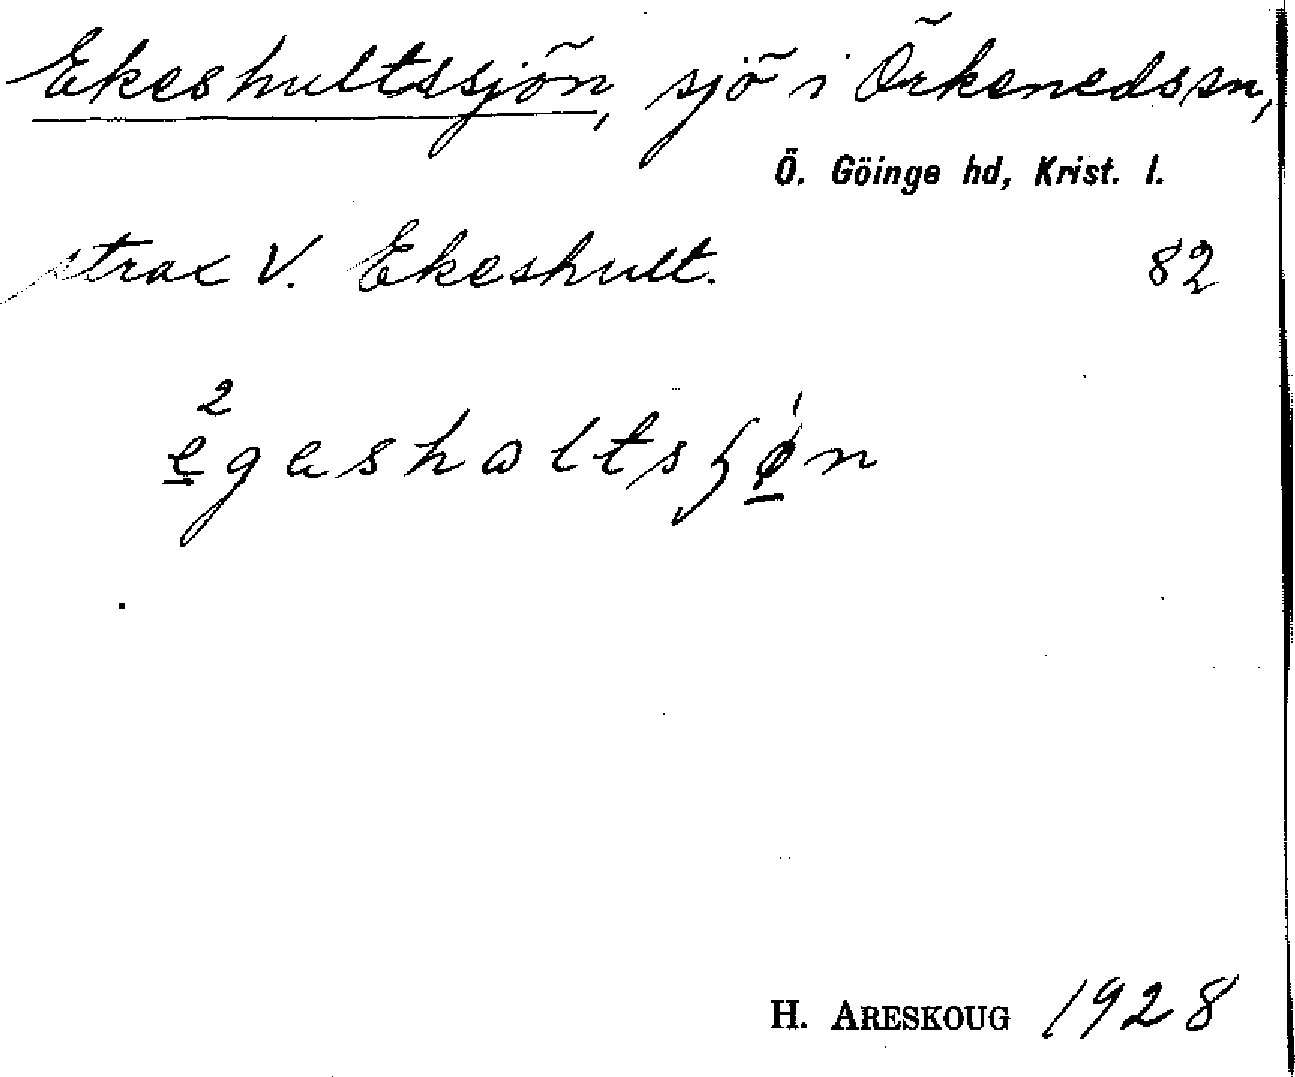 Ekeshultssjön, sjö i Örkenedssn,
Ö. Göinge hd, Krist. l.
strax V. Ekeshult. 82
H. ARESKOUG 1928